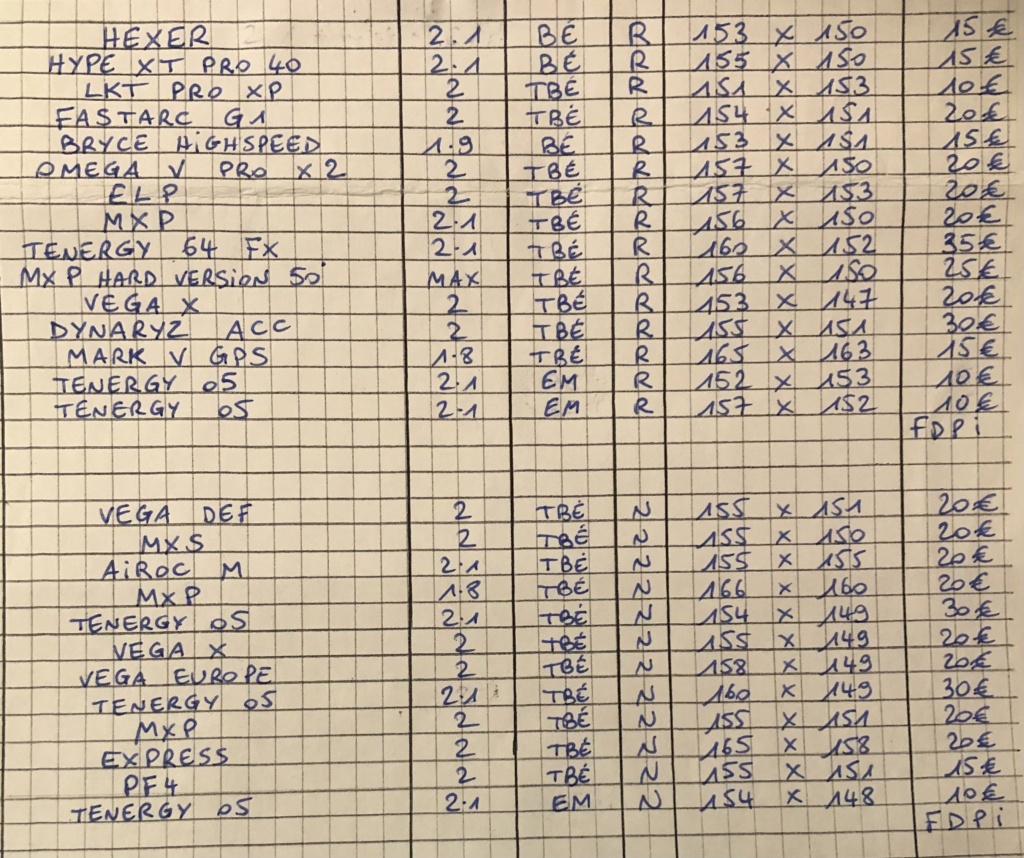 HEXER 2.1 BÉ R 153 x 150 15€
HYPE XT PRO 40 2.1 BÉ R 155 x 150 15€
LKT PRO XP 2 TBÉ R 151 x 153 10€
FASTARC G1 2 TBÉ R 154 x 151 20€
BRYCE HiGHSPEED 1.9 BÉ R 153 x 151 15€
OMEGA V PRO x2 2 TBÉ R 157 x 150 20€
ELP 2 TBÉ R 157 x 153 20€
MXP 2.1 TBÉ R 156 x 150 20€
TENERGY 64 FX 2.1 TBÉ R 160 x 152 35€
MXP HARD VERSION 50° MAX TBÉ R 156 x 150 25€
VEGA X 2 TBÉ R 153 x 147 20€
DYNARYZ ACC 2 TBÉ R 155 x 151 30€
MARK V GPS 1.8 TBÉ R 165 x 163 15€
TENERGY 05 2.1 EM R 152 x 153 10€
TENERGY 05 2.1 EM R 157 x 152 10€
FDPi
VEGA DEF 2 TBÉ N 155 x 151 20€
MXS 2 TBÉ N 155 x 150 20€
AiROC M 2.1 TBÉ N 155 x 155 20€
MXP 1.8 TBÉ N 166 x 160 20€
TENERGY 05 2.1 TBÉ N 154 x 149 30€
VEGA X 2 TBÉ N 155 x 149 20€
VEGA EUROPE 2 TBÉ N 158 x 149 20€
TENERGY 05 2.1 TBÉ N 160 x 149 30€
MXP 2 TBÉ N 155 x 151 20€
EXPRESS 2 TBÉ N 165 x 158 20€
PF4 2 TBÉ N 155 x 151 15€
TENERGY 05 2.1 EM N 154 x 148 10€
FDPi